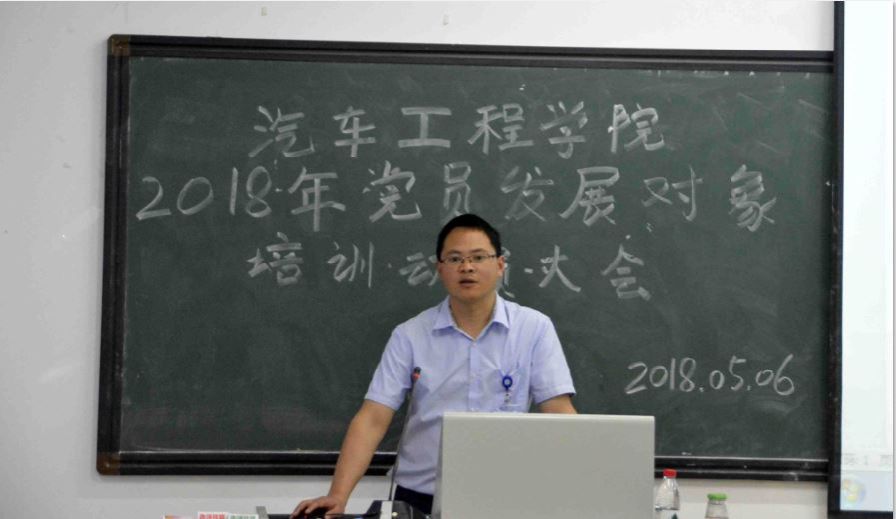 汽车工程学院
2018年党员发展对象
培训动员大会
2018.05.06